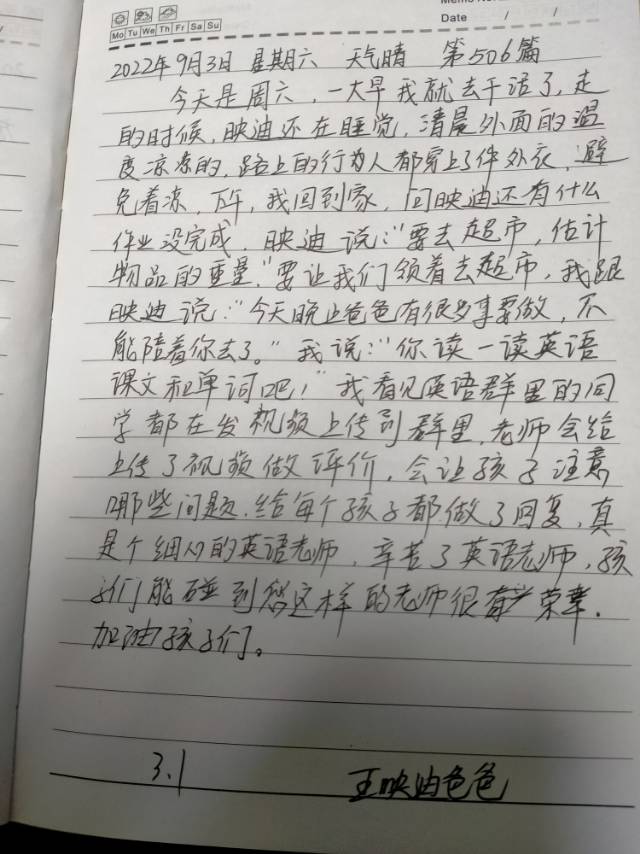 Memo No.
Mo Tu We Th Fr Sa Su
Date / /
2022年9月3日 星期六 天气晴 第506篇
今天是周六,一大早我就去干活了,走
的时候,映迪还在睡觉,清晨外面的温
度凉凉的,路上的行为人都穿上了件外衣,避
免着凉,下午,我回到家,问映迪还有什么
作业没完成,映迪说:“要去超市,估计
物品的重量,”要让我们领着去超市,我跟
映迪说:“今天晚上爸爸有很多事要做,不
能陪着你去了。”我说:“你读一读英语
课文和单词吧!”我看见英语群里的同
学都在发视频上传到群里,老师会给
上传了视频做评价,会让孩子注意
哪些问题,给每个孩子都做了回复,真
是个细心的英语老师,辛苦了英语老师,孩
子们能碰到您这样的老师很有荣幸.
加油孩子们。
3.1 王映迪爸爸